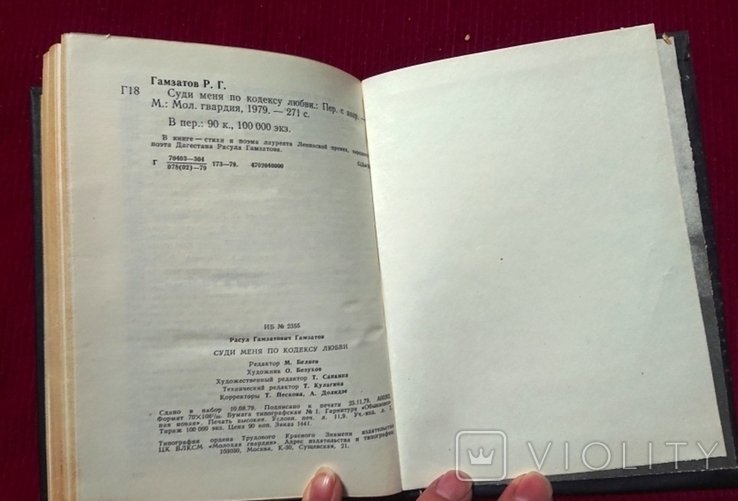 Гамзатов Р. Г.
Г18 Суди меня по кодексу любви.: Пер. с авар. —
М.: Мол. гвардия, 1979. — 271 с.
В пер.: 90 к., 100 000 экз.
В книге — стихи и поэма лауреата Ленинской премии,
поэта Дагестана Расула Гамзатова.
Г 70403—304 173—79. 4702040000
078(02)—79
ИБ № 2355
Расул Гамзатович Гамзатов
СУДИ МЕНЯ ПО КОДЕКСУ ЛЮБВИ
Редактор М. Беляев
Художник О. Безухов
Художественный редактор Т. Саянина
Технический редактор Т. Кулагина
Корректоры Т. Пескова, А. Долидзе
Сдано в набор 10.08.79. Подписано к печати 23.11.79.
Формат 70×108¹/₃₂. Бумага типографская № 1. Гарнитура «Обыкновен-
ная новая». Печать высокая. Условн. печ. л. 11,9. Уч.-изд. л.
Тираж 100 000 экз. Цена 90 коп. Заказ 1441.
Типография ордена Трудового Красного Знамени издательства
ЦК ВЛКСМ «Молодая гвардия». Адрес издательства и типографии:
103030, Москва, К-30, Сущевская, 21.
VIOLITY